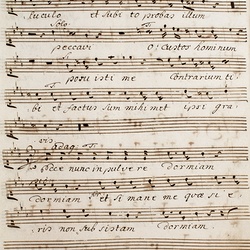 luculo et subito probas illum
Solo Tr
peccavi O custos hominum
posuisti me contrarium ti
bi et factus sum mihi met ipsi gra
vis adag: Tr
Ecce nunc in pulvere dormiam
dormiam et si mane me quæsie
ris non subsistam dormiam